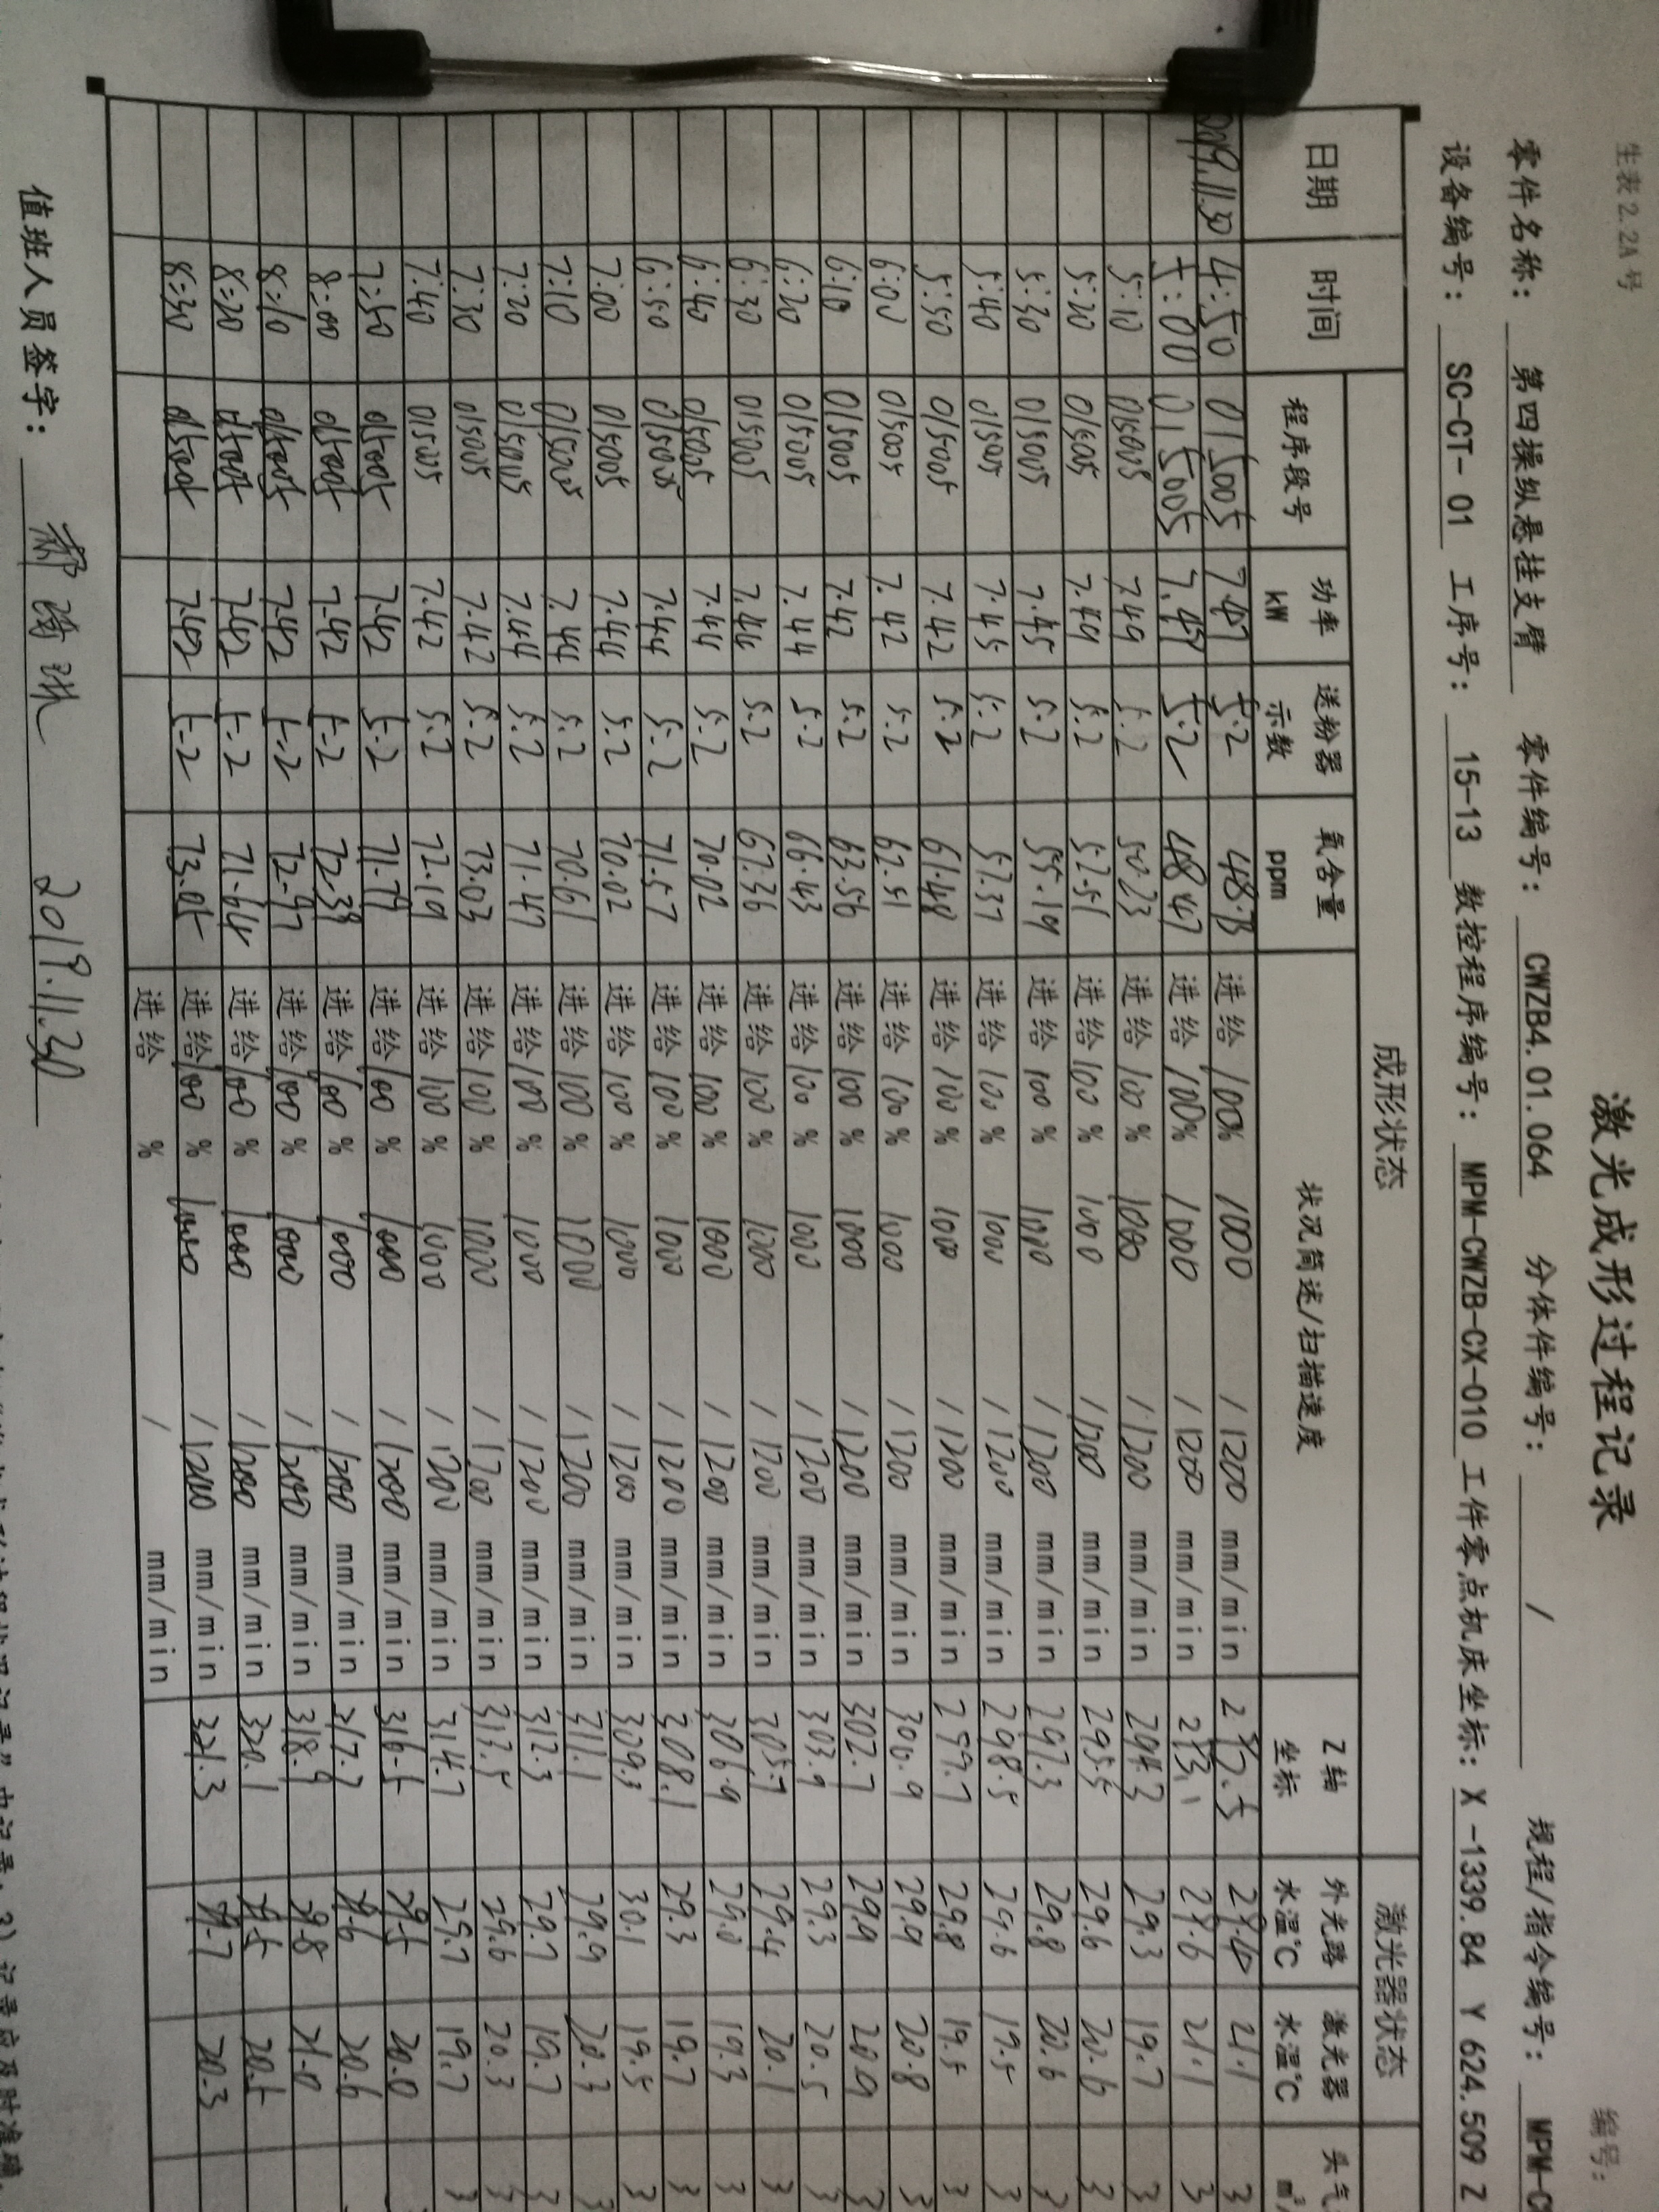 生表2.2A号
编号:
激光成形过程记录
零件名称: 第四操纵悬挂支臂 零件编号: CWZB4.01.064 分体件编号: / 规程/指令编号: MPM-C
设备编号: SC-CT-01 工序号: 15-13 数控程序编号: MPM-CWZB-CX-010 工件零点机床坐标: X -1339.84 Y 624.509 Z
成形状态 激光器状态
日期 时间 程序段号 功率 kW 送粉器示数 氧含量 ppm 状况简述/扫描速度 Z轴坐标 外光路水温℃ 激光器水温℃ 头气 m³
2019.11.30 4:50 015005 7.47 5.2 48.78 进给 100% 1000 / 1200 mm/min 292.5 29.4 21.1 3
5:00 015005 7.47 5.2 48.47 进给 100% 1000 / 1200 mm/min 293.1 29.6 21.1 3
5:10 015005 7.49 5.2 50.23 进给 100 % 1000 / 1200 mm/min 294.3 29.3 19.7 3
5:20 015005 7.49 5.2 52.51 进给 100 % 1000 / 1200 mm/min 295.5 29.6 20.6 3
5:30 015005 7.45 5.2 55.19 进给 100 % 1000 / 1200 mm/min 297.3 29.8 20.6 3
5:40 015005 7.45 5.2 57.37 进给 100 % 1000 / 1200 mm/min 298.5 29.6 19.5 3
5:50 015005 7.42 5.2 61.48 进给 100 % 1000 / 1200 mm/min 299.7 29.8 19.5 3
6:00 015005 7.42 5.2 62.51 进给 100 % 1000 / 1200 mm/min 300.9 29.9 20.8 3
6:10 015005 7.42 5.2 63.56 进给 100 % 1000 / 1200 mm/min 302.7 29.9 20.9 3
6:20 015005 7.44 5.2 66.43 进给 100 % 1000 / 1200 mm/min 303.9 29.3 20.5 3
6:30 015005 7.44 5.2 67.36 进给 100 % 1000 / 1200 mm/min 305.7 29.4 20.1 3
6:40 015005 7.44 5.2 70.02 进给 100 % 1000 / 1200 mm/min 306.9 29.0 19.3 3
6:50 015005 7.44 5.2 71.57 进给 100 % 1000 / 1200 mm/min 308.1 29.3 19.7 3
7:00 015005 7.44 5.2 70.02 进给 100 % 1000 / 1200 mm/min 309.3 30.1 19.5 3
7:10 015005 7.44 5.2 70.61 进给 100 % 1000 / 1200 mm/min 311.1 29.9 20.3 3
7:20 015005 7.44 5.2 71.47 进给 100 % 1000 / 1200 mm/min 312.3 29.7 19.7 3
7:30 015005 7.42 5.2 73.03 进给 100 % 1000 / 1200 mm/min 313.5 29.6 20.3 3
7:40 015005 7.42 5.2 72.19 进给 100 % 1000 / 1200 mm/min 314.7 29.7 19.7 3
7:50 015005 7.42 5.2 71.79 进给 100 % 1000 / 1200 mm/min 316.5 29.5 20.0
8:00 015005 7.42 5.2 72.39 进给 100 % 1000 / 1200 mm/min 317.7 29.6 20.6
8:10 015005 7.42 5.2 72.97 进给 100 % 1000 / 1200 mm/min 318.9 29.8 21.0
8:20 015005 7.42 5.2 71.64 进给 100 % 1000 / 1200 mm/min 320.1 29.5 20.5
8:30 015005 7.42 5.2 73.05 进给 100 % 1000 / 1200 mm/min 321.3 29.7 20.3
进给 % / mm/min
值班人员签字: 2019.11.30